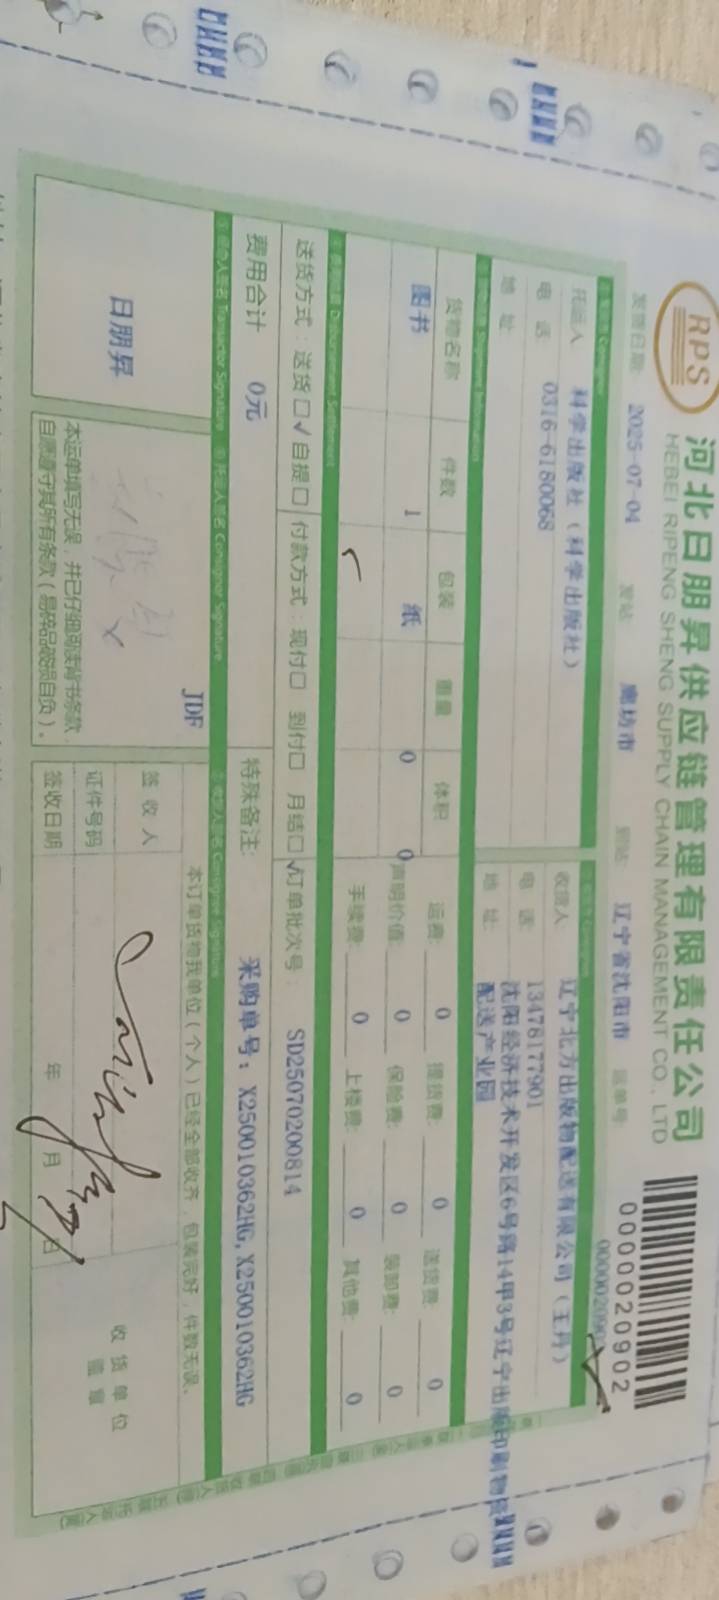 RPS
河北日朋昇供应链管理有限责任公司
HEBEI RIPENG SHENG SUPPLY CHAIN MANAGEMENT CO., LTD
0000020902
发货日期: 2025-07-04 发站: 廊坊市 到站: 辽宁省沈阳市 运单号:
托运人 科学出版社(科学出版社)
电 话 0316-6180068
地 址:
收货人: 辽宁北方出版物配送有限公司(王丹)
电 话: 13478177901
地 址: 沈阳经济技术开发区6号路14甲3号辽宁出版印刷物资
配送产业园
货物名称 件数 包装 重量 体积
图书 1 纸 0 0
运费: 0 提货费: 0 送货费: 0
声明价值: 0 保险费: 0 装卸费: 0
手续费: 0 上楼费: 0 其他费: 0
Disbursement Settlement
送货方式:送货□√自提□ 付款方式:现付□ 到付□ 月结□√ 订单批次号: SD25070200814
费用合计 0元 特殊备注: 采购单号:X250010362HG,X250010362HG
Transactor Signature Consignor Signature Consignee Signature
日朋昇
JDF
本运单填写无误,并已仔细阅读背书条款,
自愿遵守其所有条款(易碎品破损自负)。
本订单货物我单位(个人)已经全部收齐,包装完好,件数无误。
签 收 人
证件号码
签收日期 年 月 日
收货单位
盖章